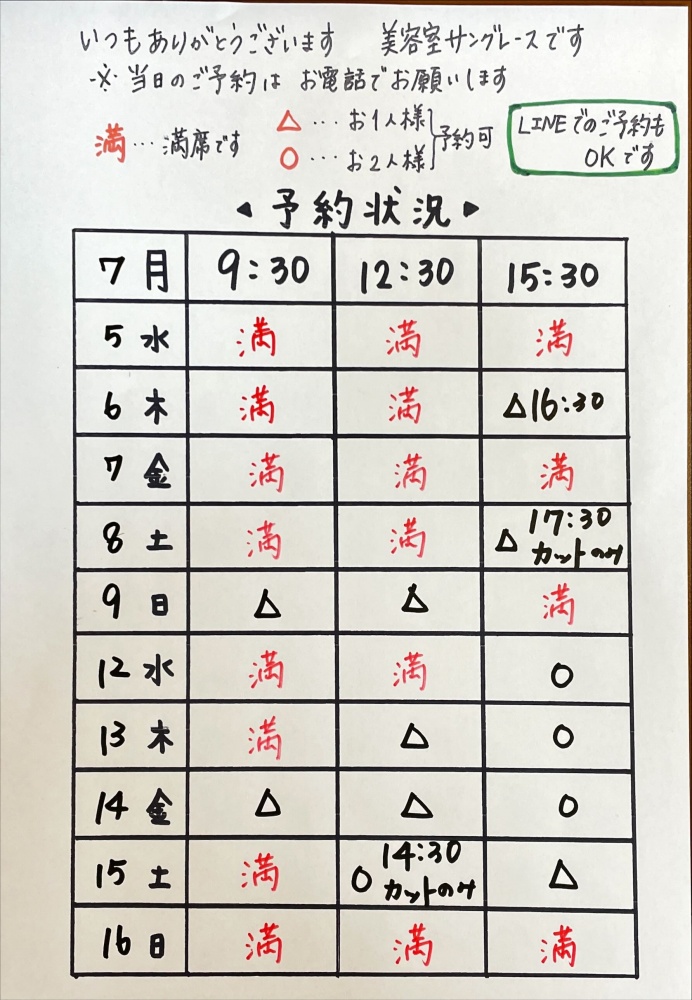 いつもありがとうございます 美容室サングレースです
※当日のご予約は お電話でお願いします
満…満席です
△…お1人様
○…お2人様
予約可
LINEでのご予約も
OKです
◀予約状況▶
7月 9:30 12:30 15:30
5 水 満 満 満
6 木 満 満 △16:30
7 金 満 満 満
8 土 満 満 △17:30 カットのみ
9 日 △ △ 満
12 水 満 満 ○
13 木 満 △ ○
14 金 △ △ ○
15 土 満 ○14:30 カットのみ △
16 日 満 満 満